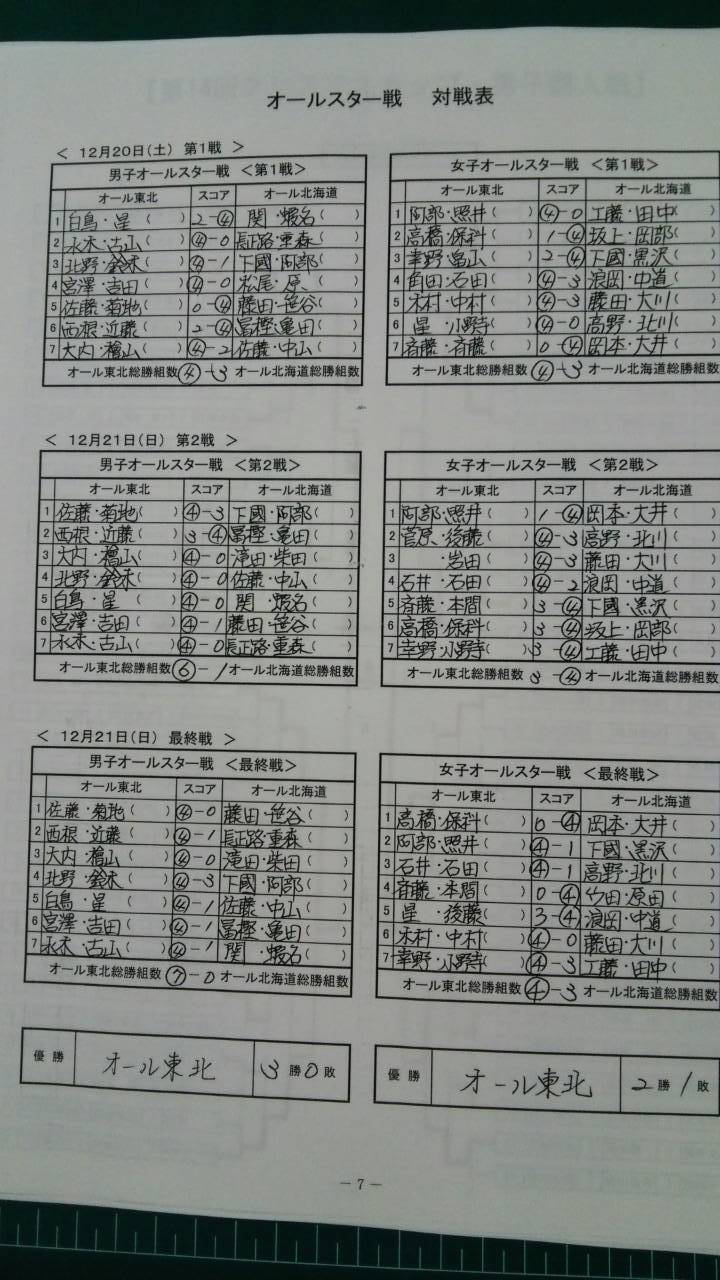 オールスター戦 対戦表
< 12月20日(土) 第1戦 >
男子オールスター戦 <第1戦>
オール東北 スコア オール北海道
1 白鳥・星( ) 2-④ 関・蝦名( )
2 永木・古山( ) ④-0 長正路・重森( )
3 北野・鈴木( ) ④-1 下國・阿部( )
4 宮澤・吉田( ) ④-0 松尾・原( )
5 佐藤・菊地( ) 0-④ 藤田・笹谷( )
6 西根・近藤( ) 2-④ 冨樫・亀田( )
7 大内・檜山( ) ④-2 佐藤・中山( )
オール東北総勝組数 ④-3 オール北海道総勝組数
女子オールスター戦 <第1戦>
オール東北 スコア オール北海道
1 阿部・照井( ) ④-0 工藤・田中( )
2 高橋・保科( ) 1-④ 坂上・岡部( )
3 幸野・畠山( ) 2-④ 下國・黒沢( )
4 角田・石田( ) ④-3 浪岡・中道( )
5 木村・中村( ) ④-3 藤田・大川( )
6 星 小野寺( ) ④-0 高野・北川( )
7 斉藤・斉藤( ) 0-④ 岡本・大井( )
オール東北総勝組数 ④-3 オール北海道総勝組数
< 12月21日(日) 第2戦 >
男子オールスター戦 <第2戦>
オール東北 スコア オール北海道
1 佐藤・菊地( ) ④-3 下國・阿部( )
2 西根・近藤( ) 3-④ 冨樫・亀田( )
3 大内・檜山( ) ④-0 滝田・柴田( )
4 北野・鈴木( ) ④-0 佐藤・中山( )
5 白鳥・星( ) ④-0 関・蝦名( )
6 宮澤・吉田( ) ④-1 藤田・笹谷( )
7 永木・古山( ) ④-0 長正路・重森( )
オール東北総勝組数 ⑥-1 オール北海道総勝組数
女子オールスター戦 <第2戦>
オール東北 スコア オール北海道
1 阿部・照井( ) 1-④ 岡本・大井( )
2 菅原・後藤( ) ④-3 高野・北川( )
3 ・岩田( ) ④-3 藤田・大川( )
4 石井・石田( ) ④-2 浪岡・中道( )
5 斉藤・本間( ) 3-④ 下國・黒沢( )
6 高橋・保科( ) 3-④ 坂上・岡部( )
7 幸野・小野寺( ) 3-④ 工藤・田中( )
オール東北総勝組数 3-④ オール北海道総勝組数
< 12月21日(日) 最終戦 >
男子オールスター戦 <最終戦>
オール東北 スコア オール北海道
1 佐藤・菊地( ) ④-0 藤田・笹谷( )
2 西根・近藤( ) ④-1 長正路・重森( )
3 大内・檜山( ) ④-0 滝田・柴田( )
4 北野・鈴木( ) ④-3 下國・阿部( )
5 白鳥・星( ) ④-1 佐藤・中山( )
6 宮澤・吉田( ) ④-1 冨樫・亀田( )
7 永木・古山( ) ④-1 関・蝦名( )
オール東北総勝組数 ⑦-0 オール北海道総勝組数
女子オールスター戦 <最終戦>
オール東北 スコア オール北海道
1 高橋・保科( ) 0-④ 岡本・大井( )
2 阿部・照井( ) ④-1 下國・黒沢( )
3 石井・石田( ) ④-1 高野・北川( )
4 斉藤・本間( ) 0-④ 竹田・原田( )
5 星 後藤( ) 3-④ 浪岡・中道( )
6 木村・中村( ) ④-0 藤田・大川( )
7 幸野・小野寺( ) ④-3 工藤・田中( )
オール東北総勝組数 ④-3 オール北海道総勝組数
優勝 オール東北 3勝0敗
優勝 オール東北 2勝1敗
-7-